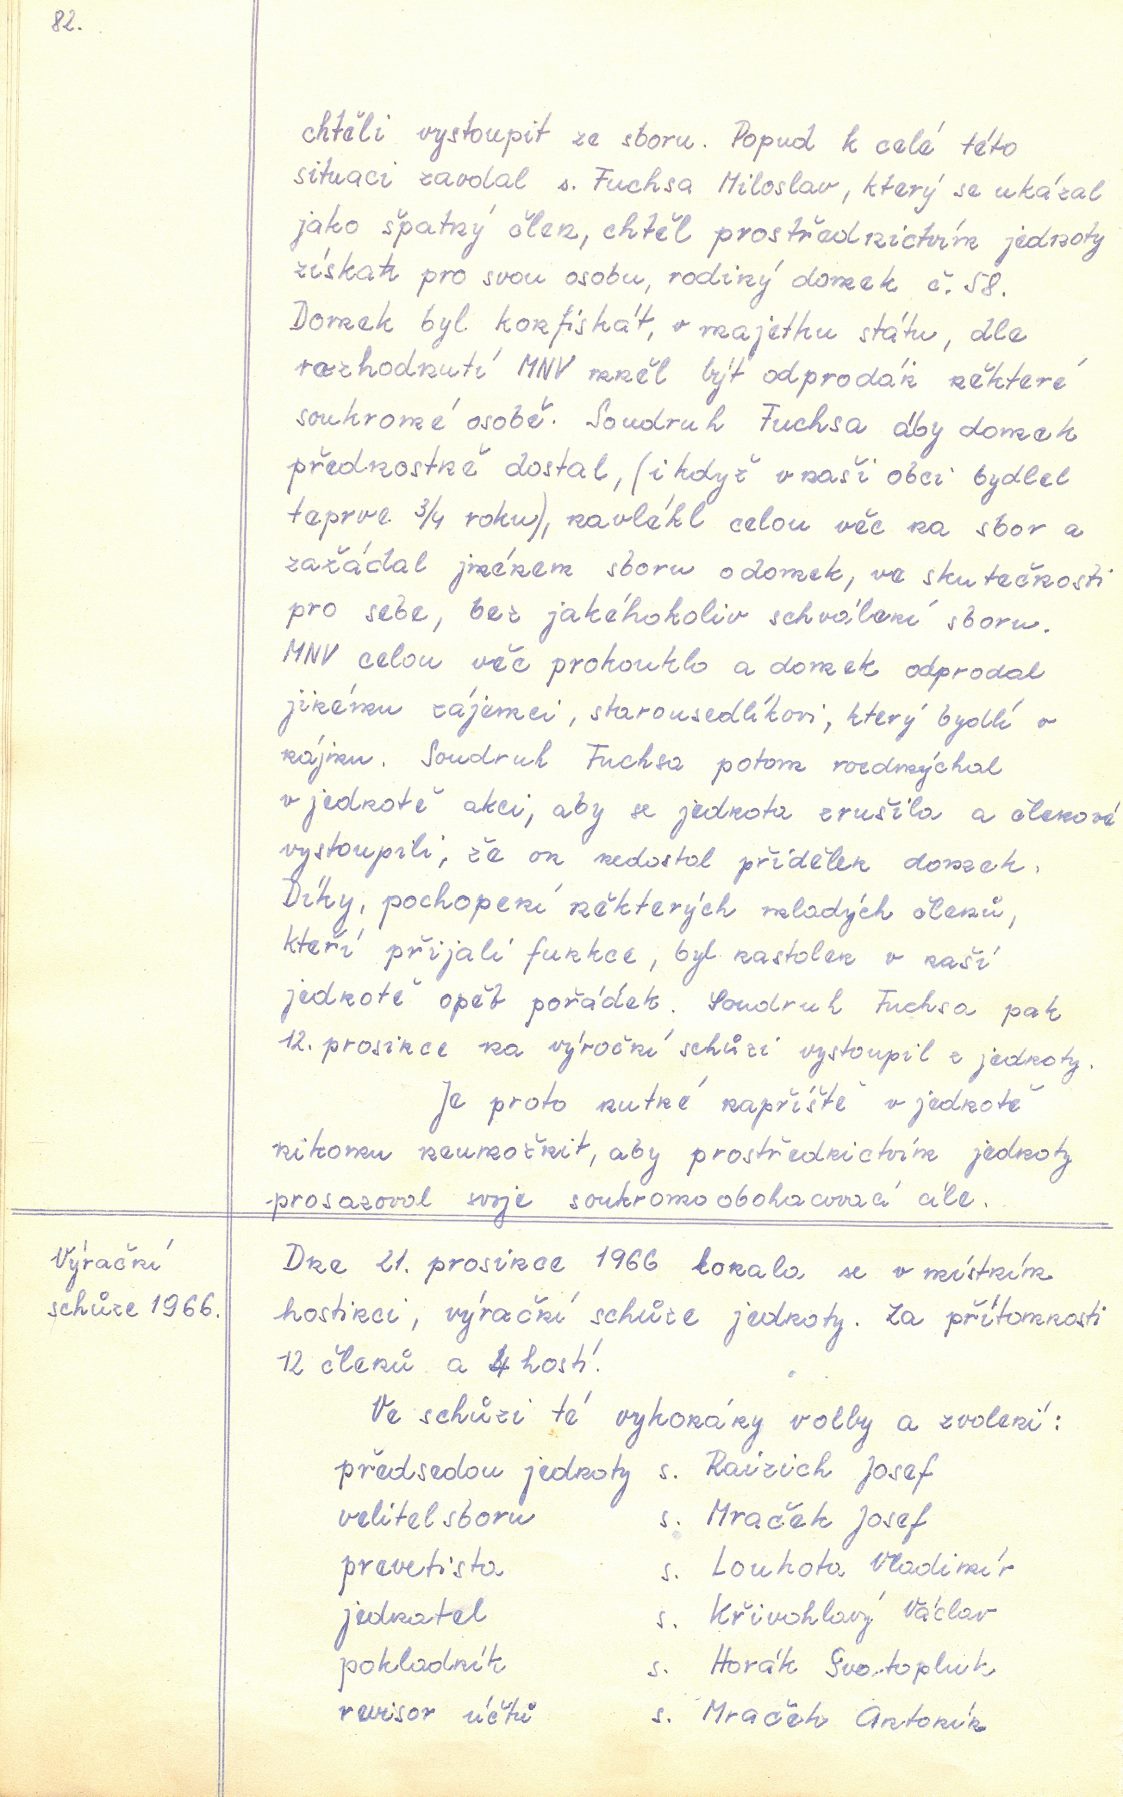 82.
chtěli vystoupit ze sboru. Popud k celé této
situaci zavdal s. Fuchsa Miloslav, který se ukázal
jako špatný člen, chtěl prostřednictvím jednoty
získat pro svou osobu, rodiný domek č. 58.
Domek byl konfiskát, v majetku státu, dle
rozhodnutí MNV měl být odprodán některé
soukromé osobě. Soudruh Fuchsa aby domek
přednostně dostal, (i když v naši obci bydlel
teprve 3/4 roku), navlékl celou věc na sbor a
zažádal jménem sboru o domek, ve skutečnosti
pro sebe, bez jakéhokoliv schválení sboru.
MNV celou věc prokouklo a domek odprodal
jinému zájemci, starousedlíkovi, který bydlí v
nájmu. Soudruh Fuchsa potom rozdmýchal
v jednotě akci, aby se jednota zrušila a členové
vystoupili, že on nedostal přidělen domek.
Díky, pochopení některých mladých členů,
kteří přijali funkce, byl nastolen v naší
jednotě opět pořádek. Soudruh Fuchsa pak
12. prosince na výroční schůzi vystoupil z jednoty.
Je proto nutné napříště v jednotě
nikomu neumožnit, aby prostřednictvím jednoty
prosazoval svoje soukromoobohacovací cíle.
Výrační
schůze 1966.
Dne 21. prosince 1966 konala se v místním
hostinci, výrační schůze jednoty. Za přítomnosti
12 členů a 4 hostí.
Ve schůzi té vykonány volby a zvolení:
předsedou jednoty s. Raizich Josef
velitel sboru s. Mraček Josef
prevetista s. Louhota Vladimír
jednatel s. Křivohlavý Václav
pokladník s. Horák Svatopluk
revisor účtů s. Mraček Antonín